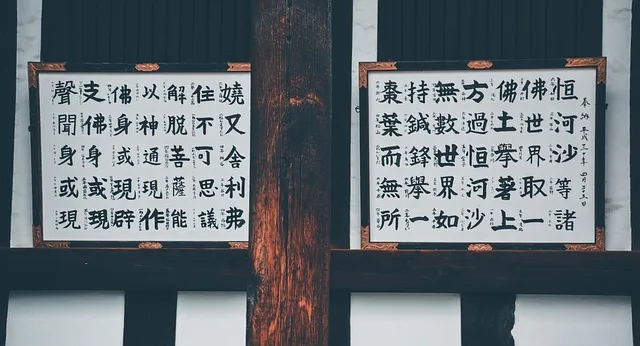 奉納 平成
恒河沙等諸
佛世界取一
佛土擧著上
方過恒河沙
無數世界如
持鍼鋒擧一
棗葉而無所
嬈又舍利弗
住不可思議
解脱菩薩能
以神通現作
佛身或現辟
支佛身或現
聲聞身或現